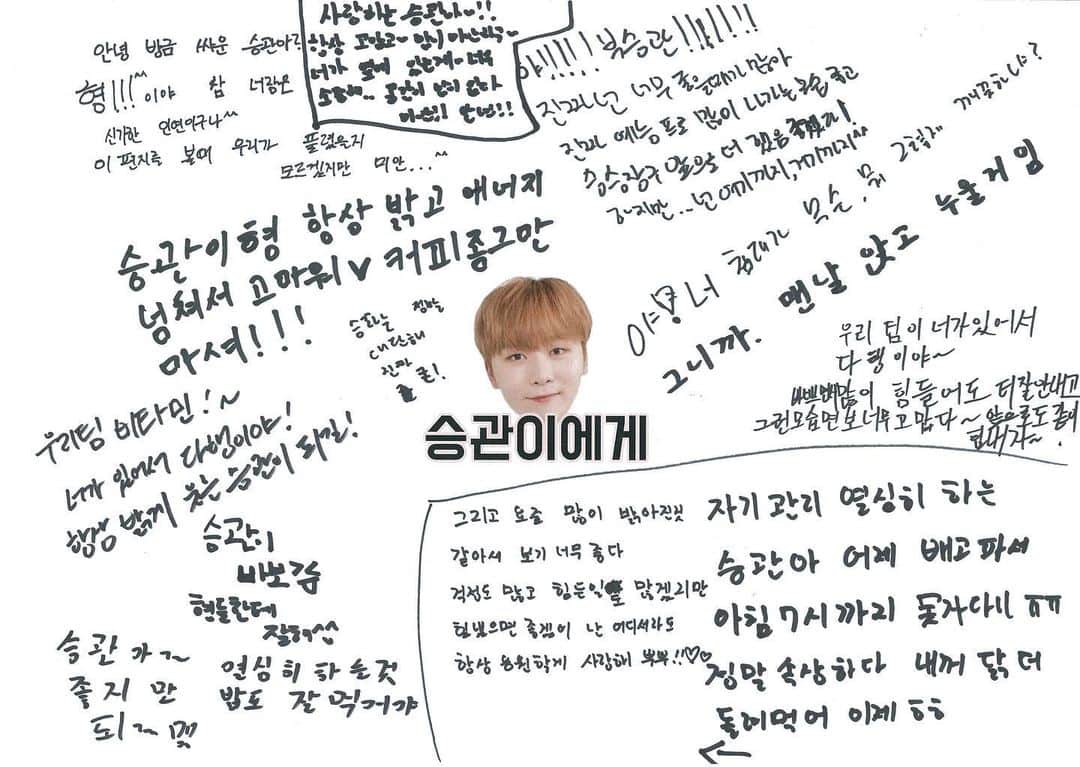 안녕 방금 싸운 승관아?
형!!!^^ 이야 참 너랑은
신기한 인연이구나^^
이 편지를 볼때 우리가 풀렸을지
모르겠지만 미안...^^
사랑하는 승관아~!!
항상 고맙고~
너가 옆에 있는게 너무
소중해..
야!!!!! 부승관!!!!!!
진짜 넌 너무 좋을때가 많아
진짜 예능 프로 많이 나가는 모습 좋고
하지만... 넌 여기까지, 거기까지^^
승관이형 항상 밝고 에너지
넘쳐서 고마워♥ 커피좀그만
마셔!!!
야! 너 침대가 무슨. 뭐 그렇게 깨끗하냐?
그니까. 맨날 앉고 누울거임
승프날 정말
대단해
진짜
우리 팀이 너가있어서
다행이야~
힘들어도 티잘안내고
그런모습면보너무고맙다~ 앞으로도 좀이
우리팀 비타민!~
너가 있어서 다행이야!
항상 밝게 웃는 승관이 되길!
승관이에게
승관이
바보감
형들한테
잘해^^
열심히 하는것
밥도 잘 먹거야
승관아~
좋지만
그리고 요즘 많이 밝아진것
같아서 보기 너무 좋다
걱정도 많고 힘든일 많겠지만
힘냈으면 좋겠어 난 어디서라도
항상 응원할게 사랑해 뿌뿌!!♡♡
자기관리 열심히 하는
승관아 어제 배고파서
아침7시까지 못자다니 ㅠㅠ
정말 속상하다 내꺼 닭 더
돌려먹어 이제 ㅎㅎ